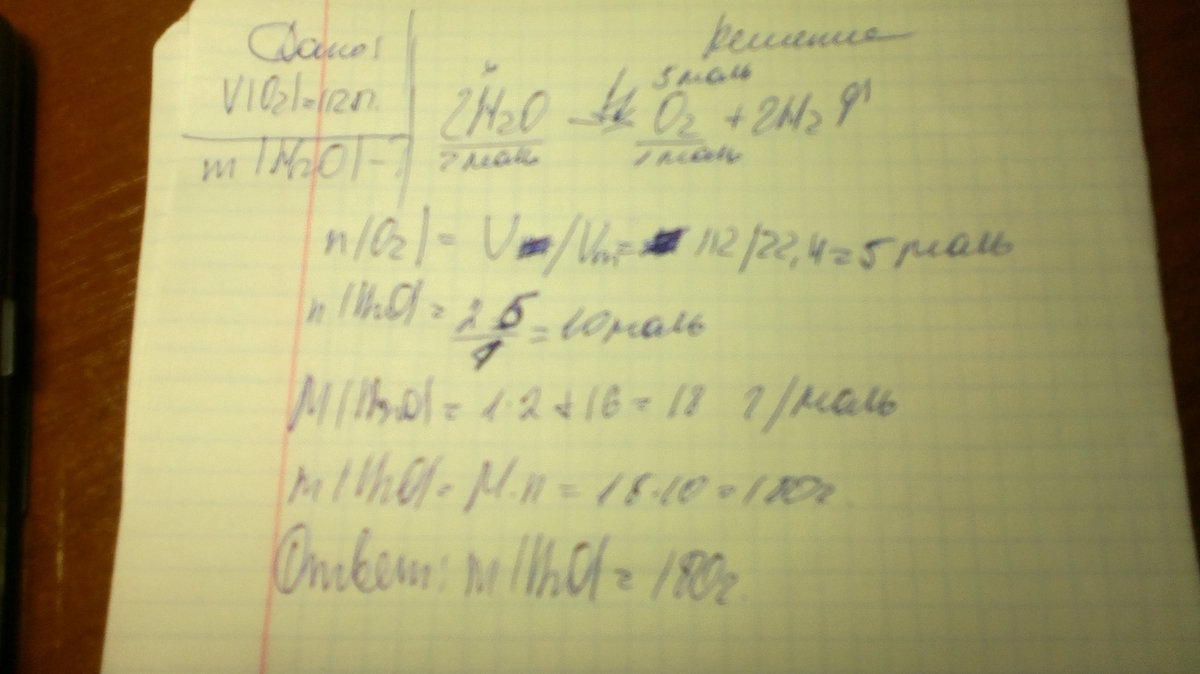 Дано:
Решение
V(O2)=112л.
m(H2O)-?
x
5 моль
2H2O → O2 + 2H2
2 моль
1 моль
n(O2) = V/Vm = 112/22,4 = 5 моль
n(H2O) = 2 5 / 1 = 10 моль
M(H2O) = 1·2 + 16 = 18 г/моль
m(H2O) = M·n = 18·10 = 180г.
Ответ: m(H2O) = 180г.